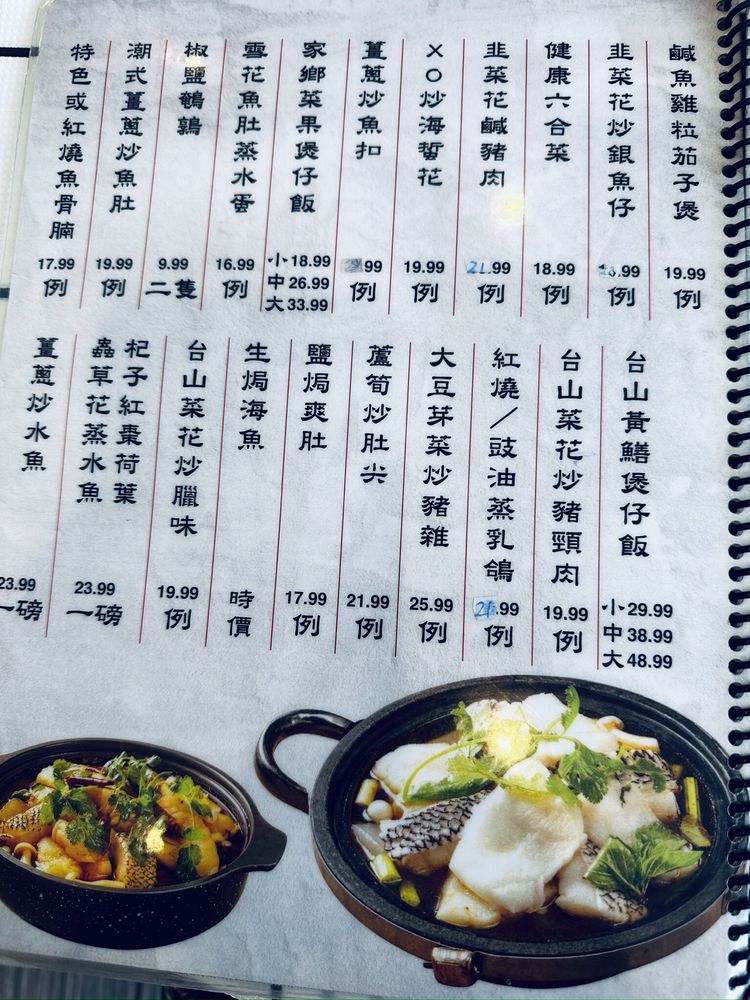 鹹魚雞粒茄子煲
19.99
例
韭菜花炒銀魚仔
.99
例
健康六合菜
18.99
例
韭菜花鹹豬肉
21.99
例
XO炒海蜇花
19.99
例
薑蔥炒魚扣
.99
例
家鄉菜果煲仔飯
小18.99
中26.99
大33.99
雪花魚肚蒸水蛋
16.99
例
椒鹽鵪鶉
9.99
二隻
潮式薑蔥炒魚肚
19.99
例
特色或紅燒魚骨腩
17.99
例
台山黃鱔煲仔飯
小29.99
中38.99
大48.99
台山菜花炒豬頸肉
19.99
例
紅燒/豉油蒸乳鴿
.99
例
大豆芽菜炒豬雜
25.99
例
蘆筍炒肚尖
21.99
例
鹽焗爽肚
17.99
例
生焗海魚
時價
台山菜花炒臘味
19.99
例
杞子紅棗荷葉
蟲草花蒸水魚
23.99
一磅
薑蔥炒水魚
23.99
一磅